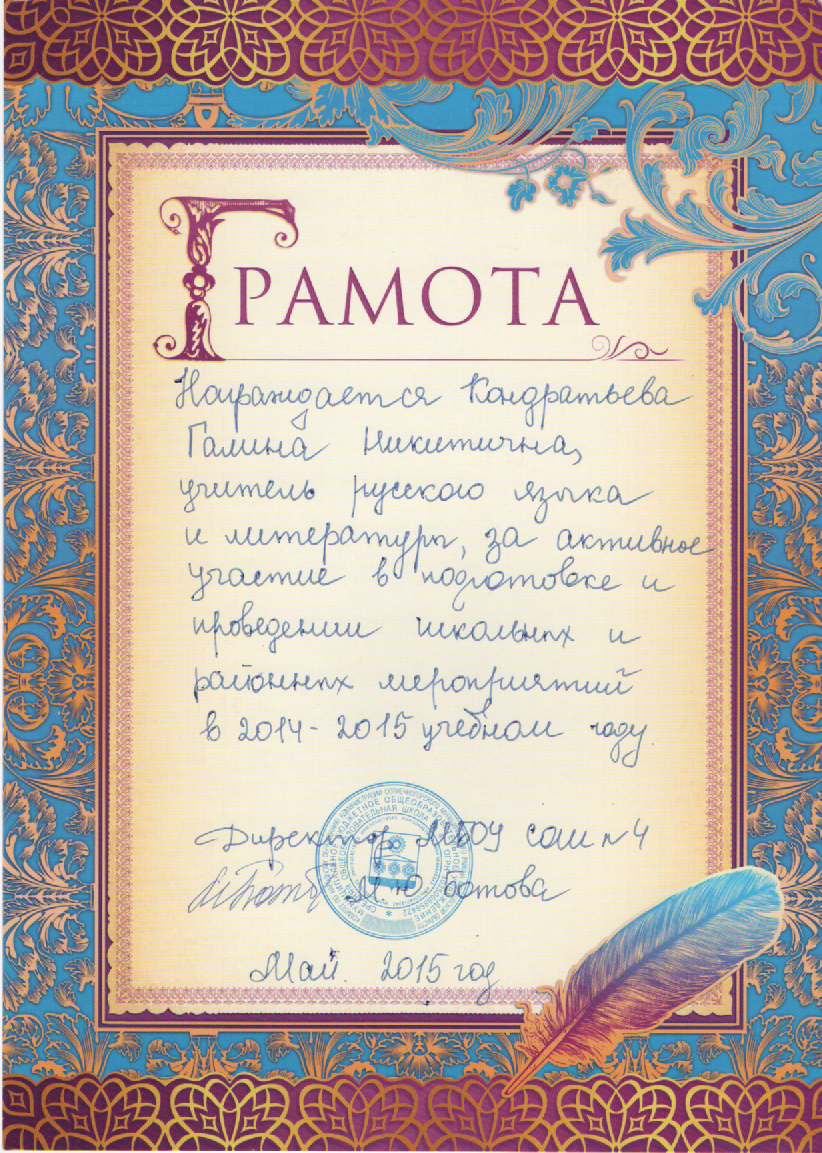 ГРАМОТА
Награждается Кондратьева
Галина Никитична,
учитель русского языка
и литературы, за активное
участие в подготовке и
проведении школьных и
районных мероприятий
в 2014-2015 учебном году
Директор МБОУ СОШ №4
М Ю Ботова
Май. 2015 год